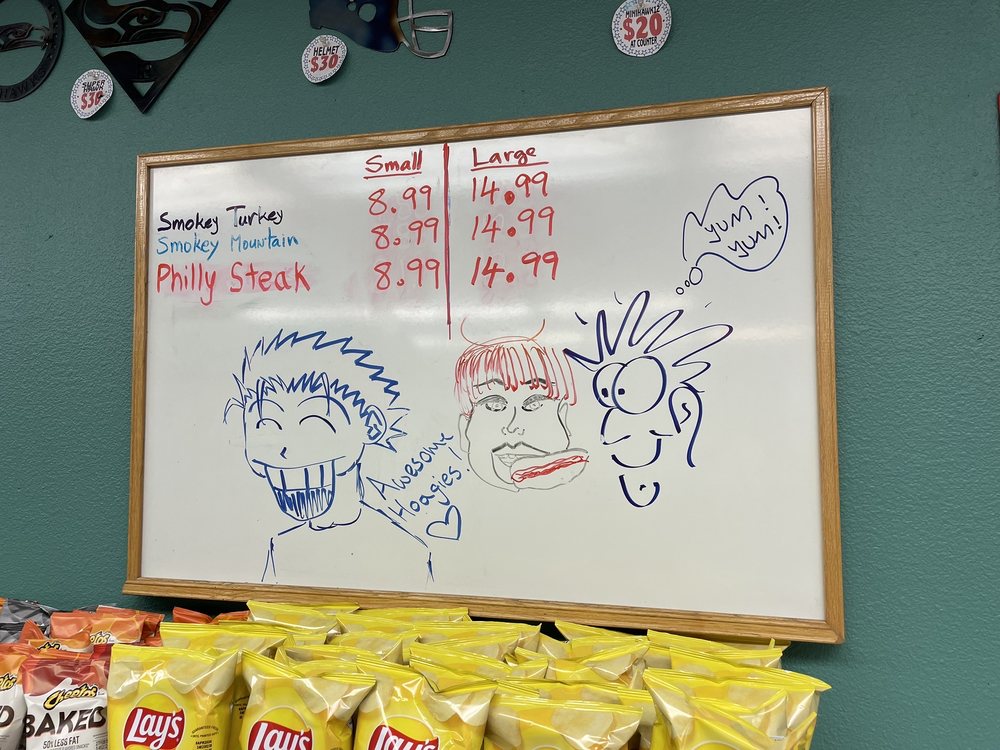 SUPER HAWK
$30
HELMET
$30
MINIHAWKIZ
$20
AT COUNTER
Small Large
Smokey Turkey 8.99 14.99
Smokey Mountain 8.99 14.99
Philly Steak 8.99 14.99
yum!
yum!
Awesome
Hoagies!
Cheetos
BAKED
50% LESS FAT
Lay's
Lay's
Lay's